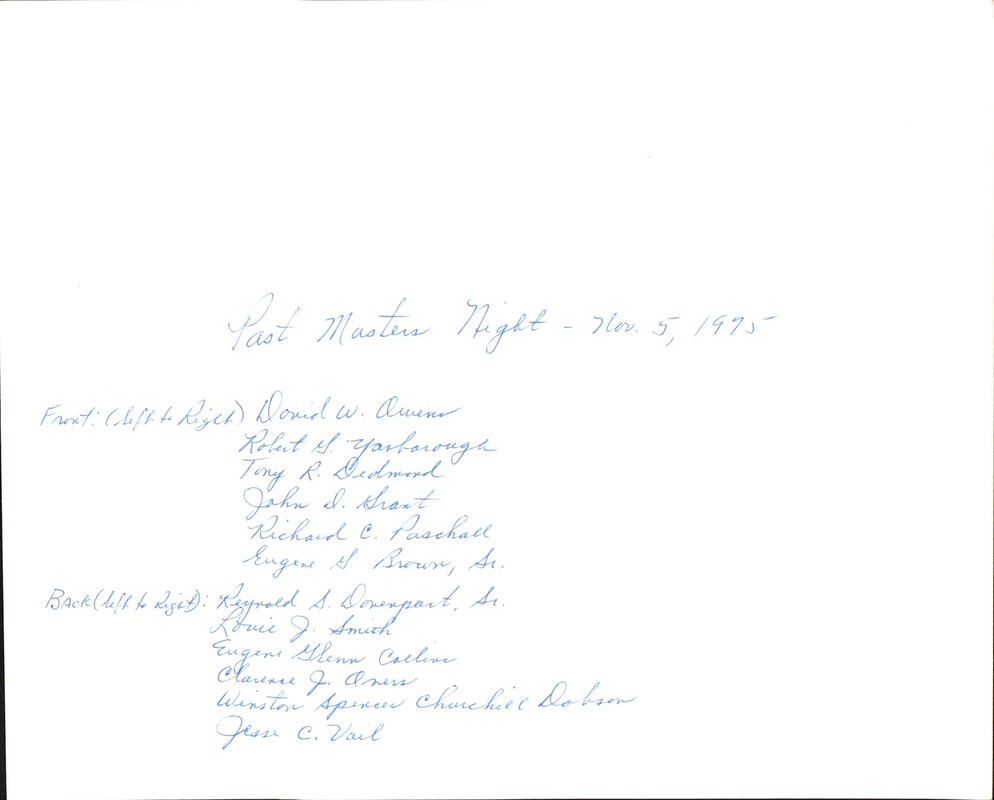 Past Masters Night - Nov. 5, 1975
Front: (left to Right) David W. Owens
Robert G. Yarborough
Tony R. Dedmond
John D. Grant
Richard C. Paschall
Eugene G. Brown, Sr.
Back (left to Right): Reynold S. Davenport, Sr.
Louie J. Smith
Eugene Glenn Collins
Clarence J.
Winston Spencer Churchill Dobson
Jesse C. Vail